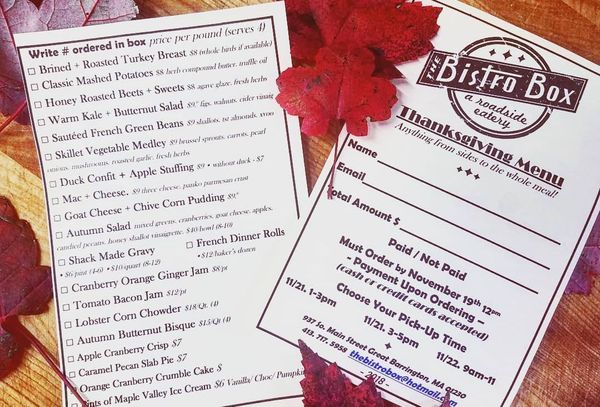 Write # ordered in box price per pound (serves 4)
Brined + Roasted Turkey Breast $8 (whole birds if available)
Classic Mashed Potatoes $8 herb compound butter, truffle oil
Honey Roasted Beets + Sweets $8 agave glaze, fresh herbs
Warm Kale + Butternut Salad $9.' figs, walnuts, cider vinaig
Sautéed French Green Beans $9 shallots, tst almonds, evoo
Skillet Vegetable Medley $9 brussel sprouts, carrots, pearl
onions, mushrooms, roasted garlic, fresh herbs
Duck Confit + Apple Stuffing $9 • without duck - $7
Mac + Cheese. $9 three cheese, panko parmesan crust
Goat Cheese + Chive Corn Pudding $9.'
Autumn Salad mixed greens, cranberries, goat cheese, apples,
candied pecans, honey shallot vinaigrette. $40 bowl (8-10)
Shack Made Gravy
• $6 pint (4-6) • $10/quart (8-12)
French Dinner Rolls
• $12/baker's dozen
Cranberry Orange Ginger Jam $8/pt
Tomato Bacon Jam $12/pt
Lobster Corn Chowder $18/Qt. (4)
Autumn Butternut Bisque $15/Qt (4)
Apple Cranberry Crisp $7
Caramel Pecan Slab Pie $7
Orange Cranberry Crumble Cake $
Pints of Maple Valley Ice Cream $6 Vanilla/ Choc/ Pumpkin
THE
Bistro Box
a roadside
eatery
Thanksgiving Menu
Anything from sides to the whole meal!
Name
Email
Total Amount $
Paid / Not Paid
Must Order by November 19th 12pm
- Payment Upon Ordering –
(cash or credit cards accepted)
Choose Your Pick-Up Time
11/21. 1-3pm 11/21. 3-5pm 11/22. 9am-11
937 So. Main Street Great Barrington, MA 01230
413. 717. 5958 thebistrobox@hotmail.com
- 2018 -